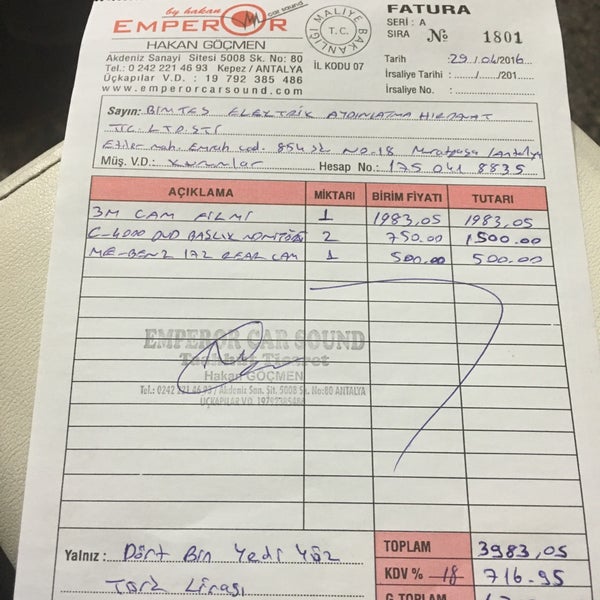 by hakan
EMPEROR car sound
HAKAN GÖÇMEN
Akdeniz Sanayi Sitesi 5008 Sk. No: 80
Tel.: 0 242 221 46 93 Kepez / ANTALYA
Üçkapılar V.D. : 19 792 385 486
www.emperorcarsound.com
MALİYE BAKANLIĞI
T.C.
İL KODU 07
FATURA
SERİ : A
SIRA № 1801
Tarih :29/04/2016
İrsaliye Tarihi :....../....../201....
İrsaliye No. :
Sayın: BİMTES ELEKTRİK AYDINLATMA HIRDAVAT
TİC. LTD. ŞTİ
Etiler mah. Emrah cad. 854 sk NO.18 Muratpaşa/Antalya
Müş. V.D.: Kurumlar Hesap No.: 175 041 8835
AÇIKLAMA MİKTARI BİRİM FİYATI TUTARI
3M CAM FİLMİ 1 1983,05 1983,05
C-4000 DVD BAŞLIK MONİTÖRÜ 2 750.00 1500.00
ME-BENZ 172 REAR CAM 1 500.00 500.00
EMPEROR CAR SOUND
Taahhüt Ticaret
Hakan GÖÇMEN
Tel.: 0242 221 46 93 / Akdeniz San. Sit. 5008 Sk. No:80 ANTALYA
ÜÇKAPILAR V.D. 19792385486
Yalnız : Dört Bin Yedi Yüz
Türk Lirası
TOPLAM 3983,05
KDV % 18 716.95
G.TOPLAM